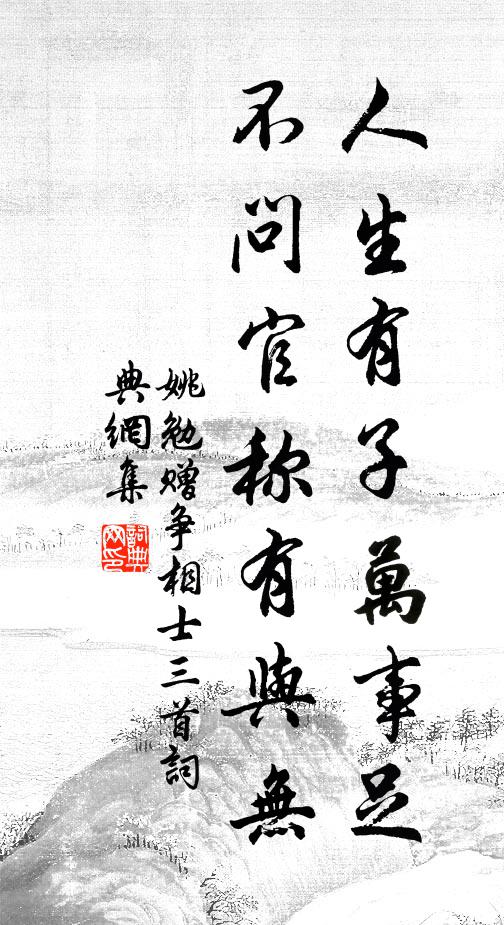 人生有子萬事足
不問官称有與無
姚勉赠争相士三首詞
典網集
詞典網印